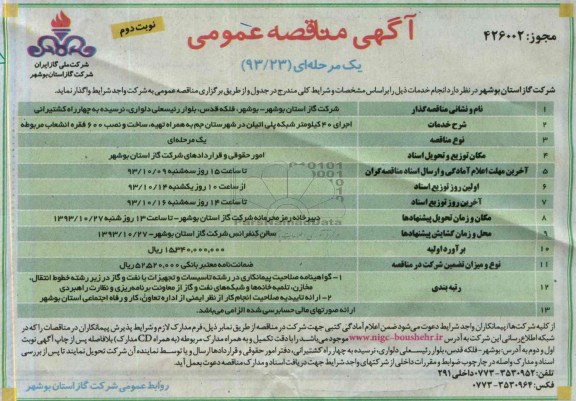 آگهی مناقصه عمومی
نوبت دوم
مجوز: ۴۲۶۰۰۲
یک مرحله‌ای (۹۳/۲۳)
شرکت ملی گاز ایران
شرکت گاز استان بوشهر
شرکت گاز استان بوشهر در نظر دارد انجام خدمات ذیل را بر اساس مشخصات و شرایط کلی مندرج در جدول و از طریق برگزاری مناقصه عمومی به شرکت واجد شرایط واگذار نماید.
۱ نام و نشانی مناقصه گذار شرکت گاز استان بوشهر- بوشهر، فلکه قدس، بلوار رئیسعلی دلواری، نرسیده به چهارراه کشتیرانی
۲ شرح خدمات اجرای ۴۰ کیلومتر شبکه پلی اتیلن در شهرستان جم به همراه تهیه، ساخت و نصب ۶۰۰ فقره انشعاب مربوطه
۳ نوع مناقصه یک مرحله‌ای
۴ مکان توزیع و تحویل اسناد امور حقوقی و قراردادهای شرکت گاز استان بوشهر
۵ آخرین مهلت اعلام آمادگی و ارسال اسناد مناقصه گران تا ساعت ۱۵ روز سه‌شنبه ۹۳/۱۰/۰۹
۶ اولین روز توزیع اسناد از ساعت ۱۰ روز یکشنبه ۹۳/۱۰/۱۴
۷ آخرین روز توزیع اسناد تا ساعت ۱۴ روز سه‌شنبه ۹۳/۱۰/۱۶
۸ مکان و زمان تحویل پیشنهادها دبیرخانه رمز محرمانه شرکت گاز استان بوشهر- تا ساعت ۱۳ روز شنبه ۱۳۹۳/۱۰/۲۷
۹ محل و زمان گشایش پیشنهادها سالن کنفرانس شرکت گاز استان بوشهر- ۱۳۹۳/۱۰/۲۷
۱۰ برآورد اولیه ۱۵,۳۴۰,۰۰۰,۰۰۰ ریال
۱۱ نوع و میزان تضمین شرکت در مناقصه ضمانت‌نامه معتبر بانکی ۵۲,۵۲۰,۰۰۰ ریال
۱۲ رتبه بندی ۱- گواهینامه صلاحیت پیمانکاری در رشته تاسیسات و تجهیزات یا نفت و گاز در زیر رشته خطوط انتقال،
مخازن، تلمبه خانه‌ها و شبکه‌های نفت و گاز از معاونت برنامه‌ریزی و نظارت راهبردی
۲- ارائه تاییدیه صلاحیت انجام کار از نظر ایمنی از اداره تعاون، کار و رفاه اجتماعی استان بوشهر
۱۳ ارائه صورتهای مالی حسابرسی شده الزامی می‌باشد.
از کلیه شرکت‌ها/ پیمانکاران واجد شرایط دعوت می‌شود ضمن اعلام آمادگی کتبی جهت شرکت در مناقصه از طریق نمابر ذیل، فرم مدارک لازم و شرایط پذیرش پیمانکاران در مناقصات را که در
شبکه اطلاع رسانی این شرکت به آدرس www.nigc-boushehr.ir موجود می‌باشد را با دقت تکمیل و به همراه مدارک مربوطه (به همراه CD مدارک) بلافاصله پس از چاپ آگهی نوبت
اول و دوم به آدرس: بوشهر- فلکه قدس، بلوار رئیسعلی دلواری، نرسیده به چهارراه کشتیرانی، دفتر امور حقوقی و قراردادها ارسال و یا توسط نماینده آن شرکت تحویل نمایند تا پس از بررسی
اسناد و مدارک واصله در چارچوب ضوابط و مقررات داخلی از شرکتهای واجد شرایط جهت دریافت اسناد و مدارک مناقصه دعوت بعمل آید.
تلفن: ۰۷۷۳-۳۵۳۰۹۵۲ داخلی ۲۹۱
فکس: ۰۷۷۳-۳۵۳۰۹۶۴
روابط عمومی شرکت گاز استان بوشهر